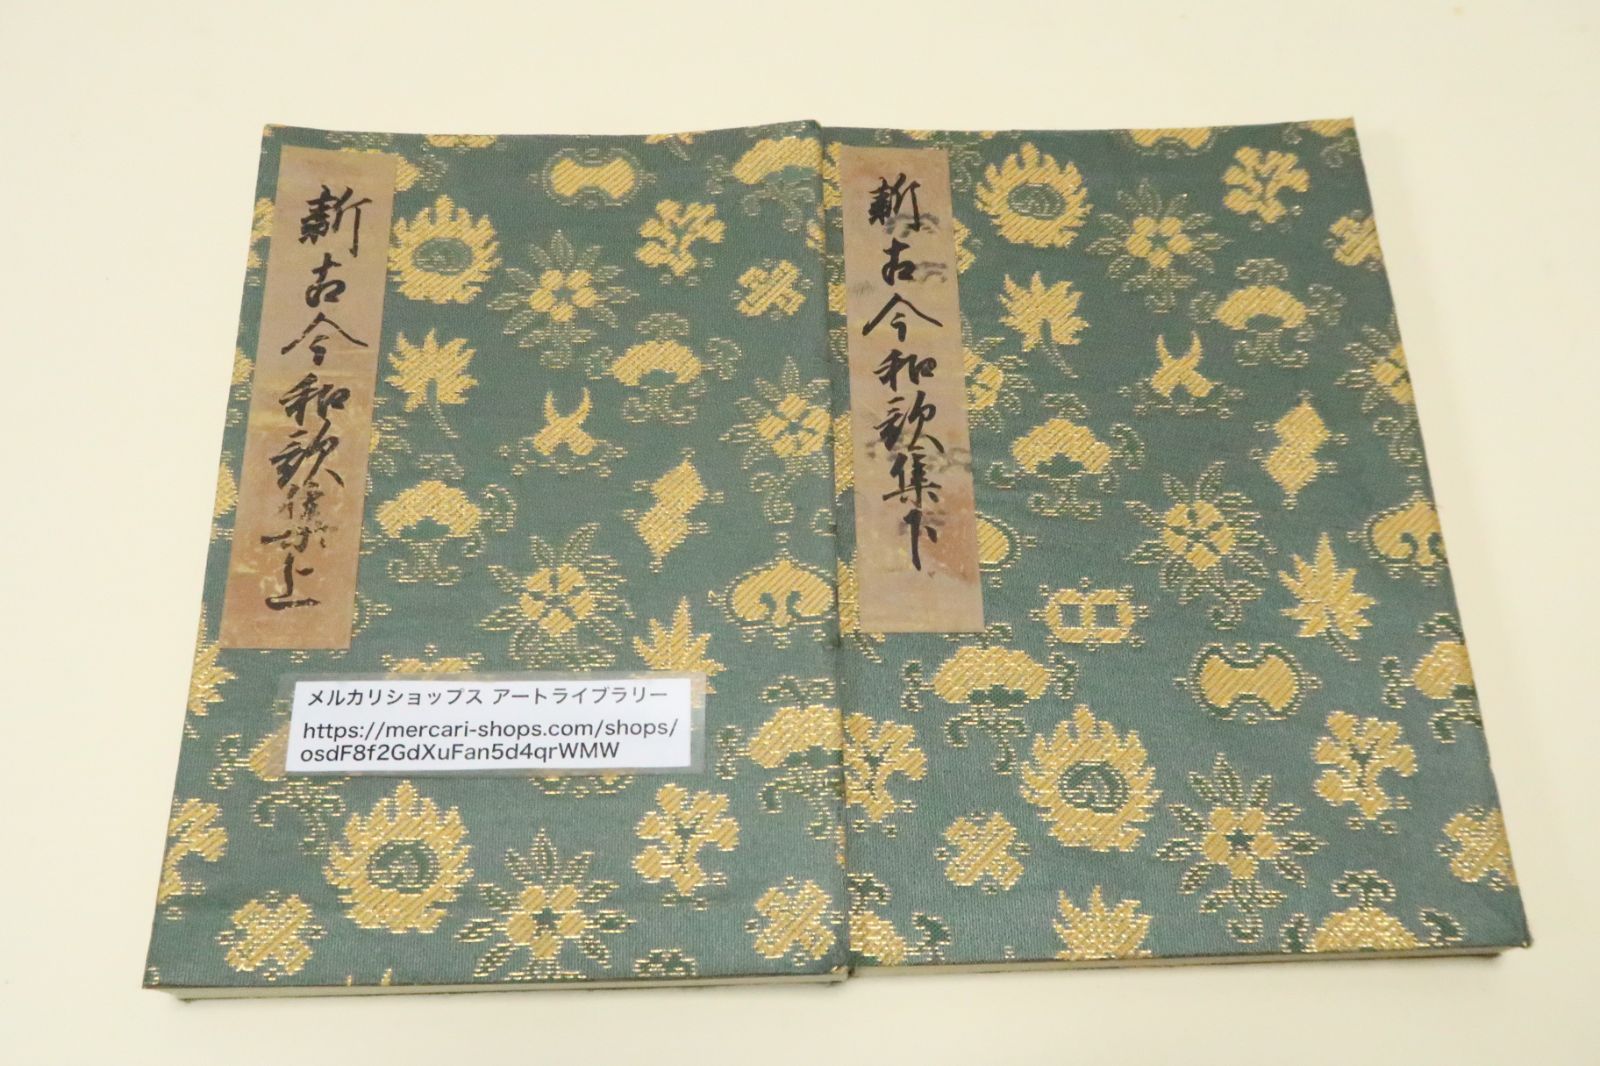 新古今和歌集上
メルカリショップス アートライブラリー
https://mercari-shops.com/shops/
osdF8f2GdXuFan5d4qrWMW
新古今和歌集下